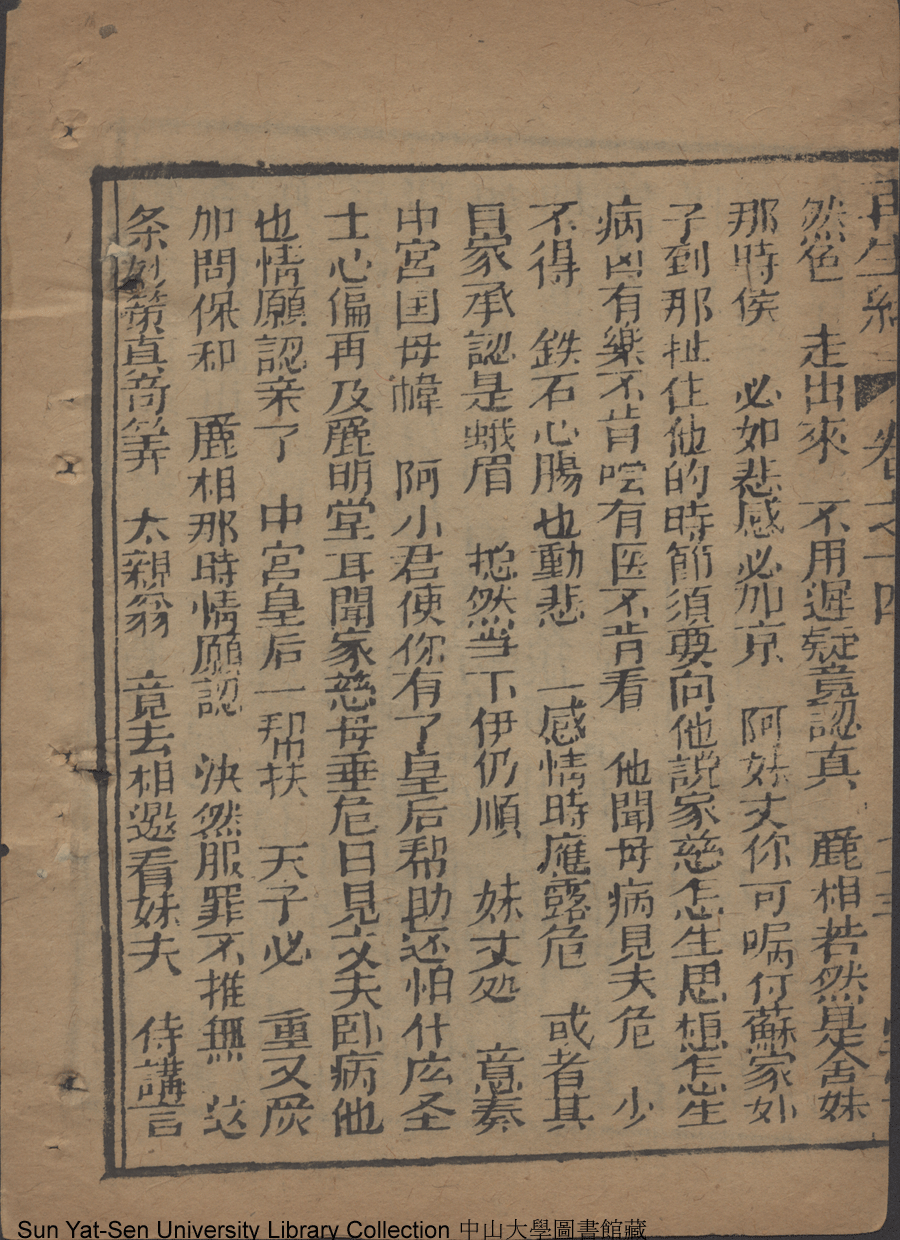 再生緣 卷之十四
然色 走出來 不用遲疑竟認真 麗相若然是舍妹
那時侯 必如悲感必加京 阿妹丈你可嘱付蘇家妙
子到那扯住他的時節須要向他説家慈怎生思想怎生
病凶有樂不肯嚐有医不肯看 他聞母病見夫危 少
不得 鉄石心腸也動悲 一感情時應露危 或者其
自家承認是蛾眉 搃然当下伊仍順 妹丈処 意奏
中宮囯母幃 阿小君使你有了皇后帮助还怕什庅圣
士心偏再及麗明堂耳聞家慈母垂危日見丈夫卧病他
也情願認亲了 中宮皇后一帮扶 天子必 重又厌
加問保和 麗相那時情願認 決然服罪不推無 这
条妙策真奇筭 太親翁 竟去相邀看妹夫 侍講言
Sun Yat-Sen University Library Collection 中山大學圖書館藏